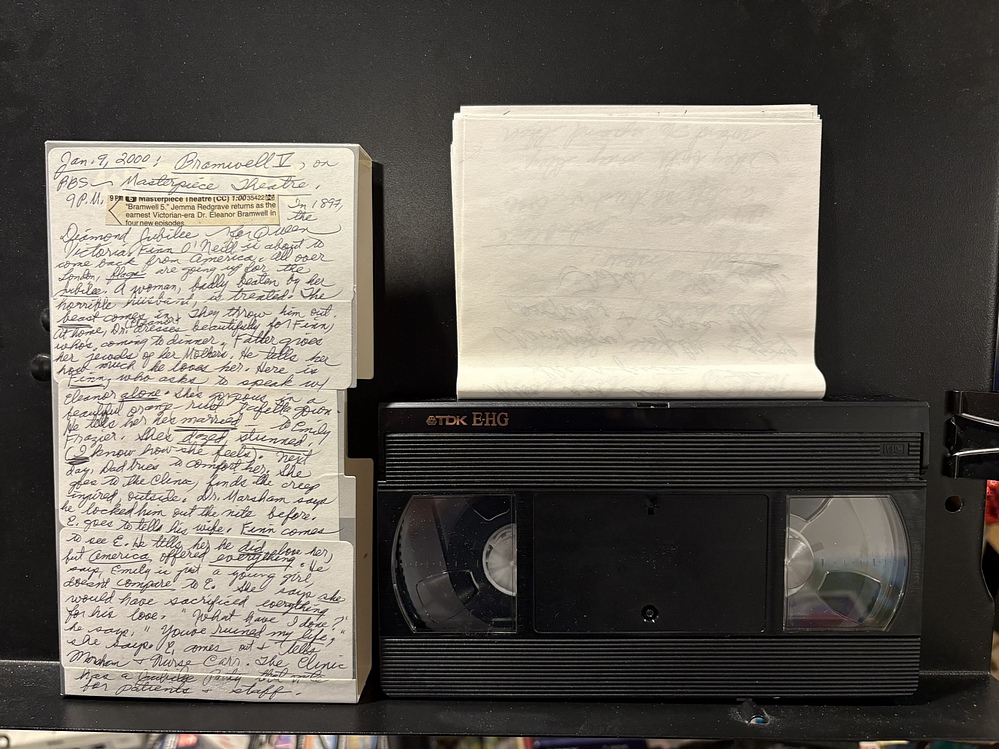 Jan. 9, 2000: Bramwell V, on
PBS Masterpiece Theatre.
9 P.M.
9 PM 6 Masterpiece Theatre (CC) 1:00 35422
"Bramwell 5." Jemma Redgrave returns as the
earnest Victorian-era Dr. Eleanor Bramwell in
four new episodes.
In 1897,
the
Diamond Jubilee for Queen
Victoria, Finn O'Neill is about to
come back from America. All over
London, flags are going up for the
Jubilee. A woman, badly beaten by her
horrible husband, is treated. The
beast comes in. They throw him out.
At home, Dr. Eleanor dresses beautifully for Finn,
who's coming to dinner. Father gives
her jewels of her Mothers. He tells her
how much he loves her. Here is
Finn, who asks to speak w/
Eleanor alone. She's gorgeous in a
beautiful orange rust taffetta gown.
He tells her he's married – to Emily
Frazier. She's dazed, stunned.
(I know how she feels). Next
day, Dad tries to comfort her. She
goes to the Clinic, finds the creep
injured, outside. Dr. Marsham says
he locked him out the nite before.
E. goes to tell his wife. Finn comes
to see E. He tells her he did love her,
but America offered everything. He
says, Emily is just a young girl,
doesnt compare to E. She says she
would have sacrificed everything
for his love. "What have I done?"
he says. "You've ruined my life,"
she says. E. comes out & tells
Marsham & Nurse Carr. The Clinic
has a Jubilee Party that nite
for patients & staff.
TDK E-HG